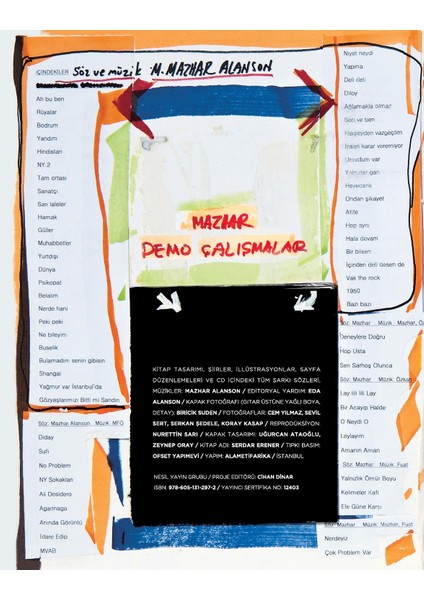 İÇİNDEKİLER Söz ve müzik M. MAZHAR ALANSON
Ah bu ben
Rüyalar
Bodrum
Yandım
Hindistan
NY.2
Tam ortası
Sanatçı
Sarı laleler
Hamak
Güller
Muhabbetler
Yurtdışı
Dünya
Psikopat
Belalım
Nerde hani
Peki peki
Ne bileyim
Buselik
Bulamadım senin gibisin
Shangai
Yağmur var İstanbul'da
Gözyaşlarımızı Bitti mi Sandın
Söz: Mazhar Alanson Müzik. MFÖ
Diday
Sufi
No Problem
NY Sokakları
Ali Desidero
Agannaga
Anında Görüntü
İdare Edip
MVAB
MAZHAR
DEMO ÇALIŞMALAR
KİTAP TASARIMI, ŞİİRLER, İLLÜSTRASYONLAR, SAYFA
DÜZENLEMELERİ VE CD İÇİNDEKİ TÜM ŞARKI SÖZLERİ,
MÜZİKLER: MAZHAR ALANSON / EDITORYAL YARDIM: EDA
ALANSON / KAPAK FOTOĞRAFI (GİTAR ÜSTÜNE YAĞLI BOYA,
DETAY): BİRİCİK SUDEN / FOTOĞRAFLAR: CEM YILMAZ, SEVİL
SERT, SERKAN ŞEDELE, KORAY KASAP / REPRODÜKSİYON:
NURETTİN SARI / KAPAK TASARIMI: UĞURCAN ATAOĞLU,
ZEYNEP ORAY / KİTAP ADI: SERDAR ERENER / TIPKI BASIM:
OFSET YAPIMEVİ / YAPIM: ALAMETİFARİKA / İSTANBUL
NESİL YAYIN GRUBU / PROJE EDİTÖRÜ: CİHAN DİNAR
ISBN: 978-605-131-297-2 / YAYINCI SERTİFİKA NO: 12403
Niyet neydi
Yapma
Deli deli
Diloy
Ağlamakla olmaz
Sen ve ben
Herşeyden vazgeçtim
İnsan karar veremiyor
Umudum var
Yalnızlar garı
Heyecanlı
Ondan şikayet
Atife
Hop aynı
Hala devam
Bir bilsen
İçinden deli desen de
Vak the rock
1950
Bazı bazı
Söz: Mazhar Müzik. Mazhar, Ö
Deneylere Doğru
Hop Usta
Sen Sarhoş Olunca
Söz: Mazhar Müzik. Özkan
Lay lili lili Lay
Bir Acayip Halde
O Neydi O
Leylayım
Amanın Aman
Söz. Mazhar Müzik. Fuat
Yalnızlık Ömür Boyu
Kelimeler Kafi
Ele Güne Karşı
Söz: Mazhar Müzik. Mazhar, Fuat
Nerdeyiz
Çok Problem Var